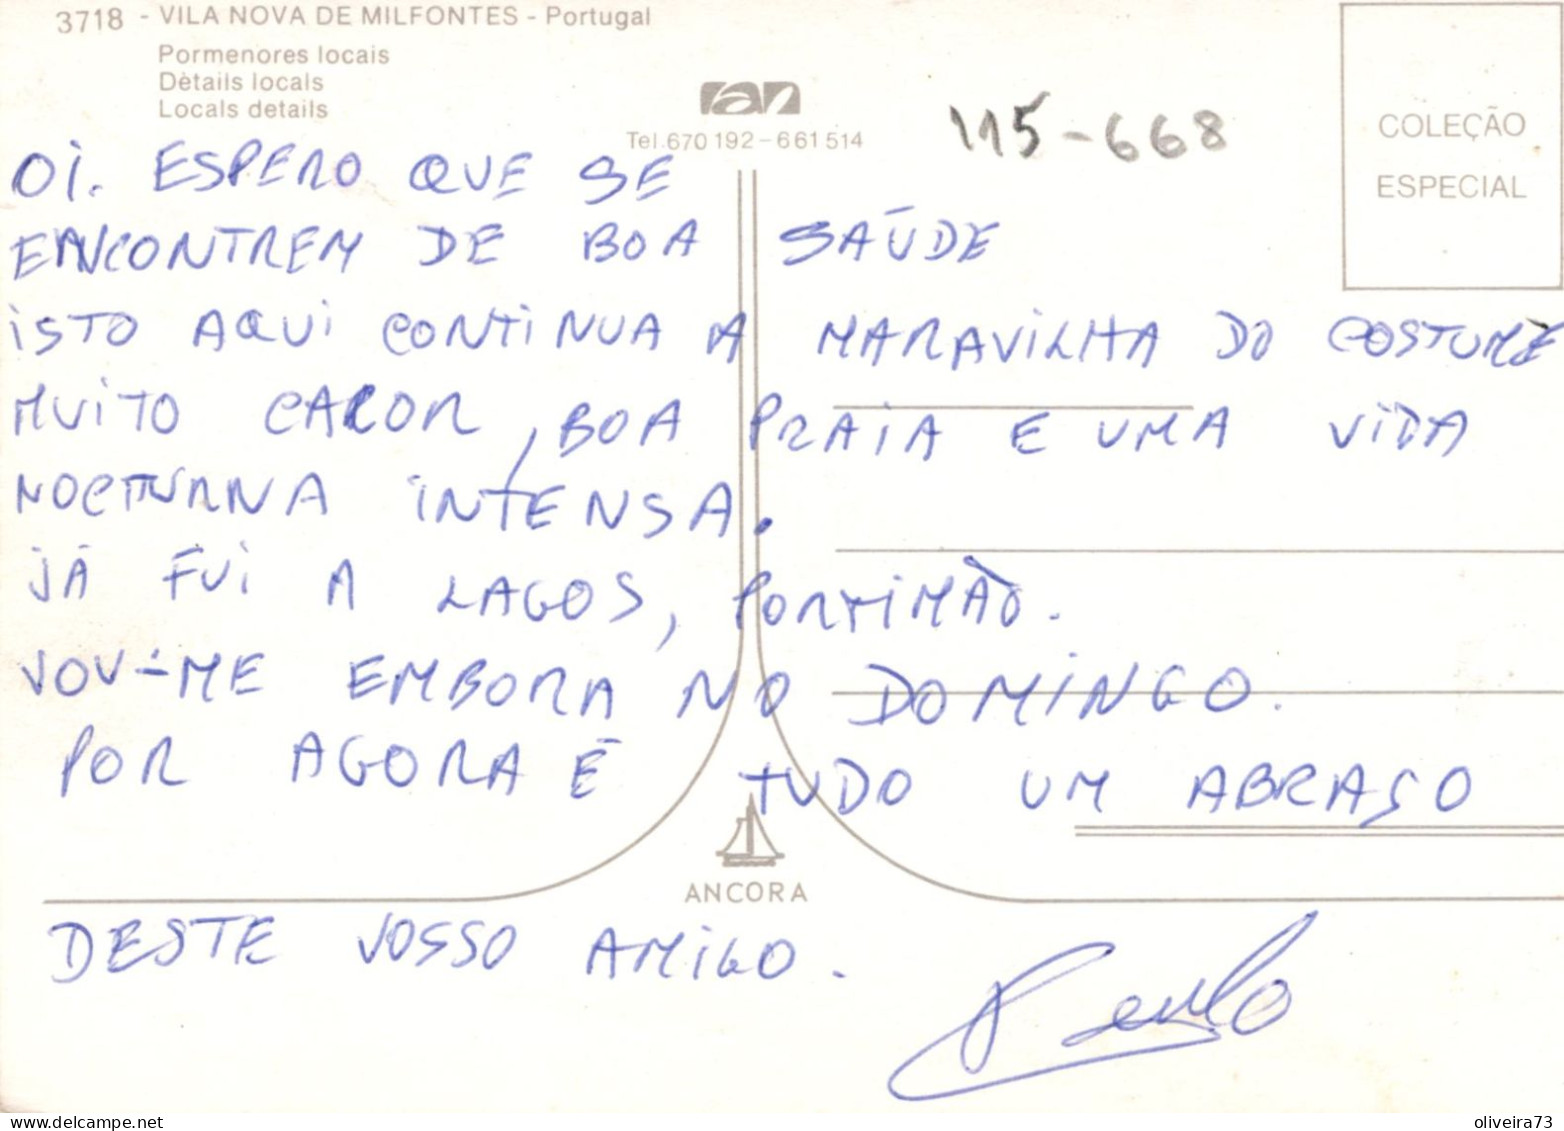 3718 - VILA NOVA DE MILFONTES - Portugal
Pormenores locais
Dètails locals
Locals details
Tel.670192-661514
115-668
COLEÇÃO
ESPECIAL
OI. ESPERO QUE SE
ENCONTREM DE BOA SAÚDE
ISTO AQUI CONTINUA A MARAVILHA DO COSTUME
MUITO CALOR, BOA PRAIA E UMA VIDA
NOCTURNA INTENSA.
JÁ FUI A LAGOS, PORTIMÃO.
VOU-ME EMBORA NO DOMINGO.
POR AGORA É TUDO UM ABRAÇO
ANCORA
DESTE VOSSO AMIGO.
Paulo
delcampe.net
oliveira73